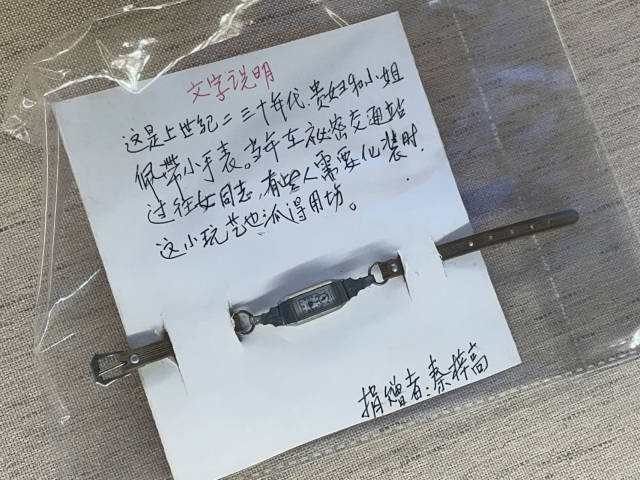 文字说明
这是上世纪二三十年代,贵妇和小姐
佩带小手表。当年在秘密交通站
过往女同志,有些人需要化装时.
这小玩艺也派得用场。
捐赠者:秦梓高